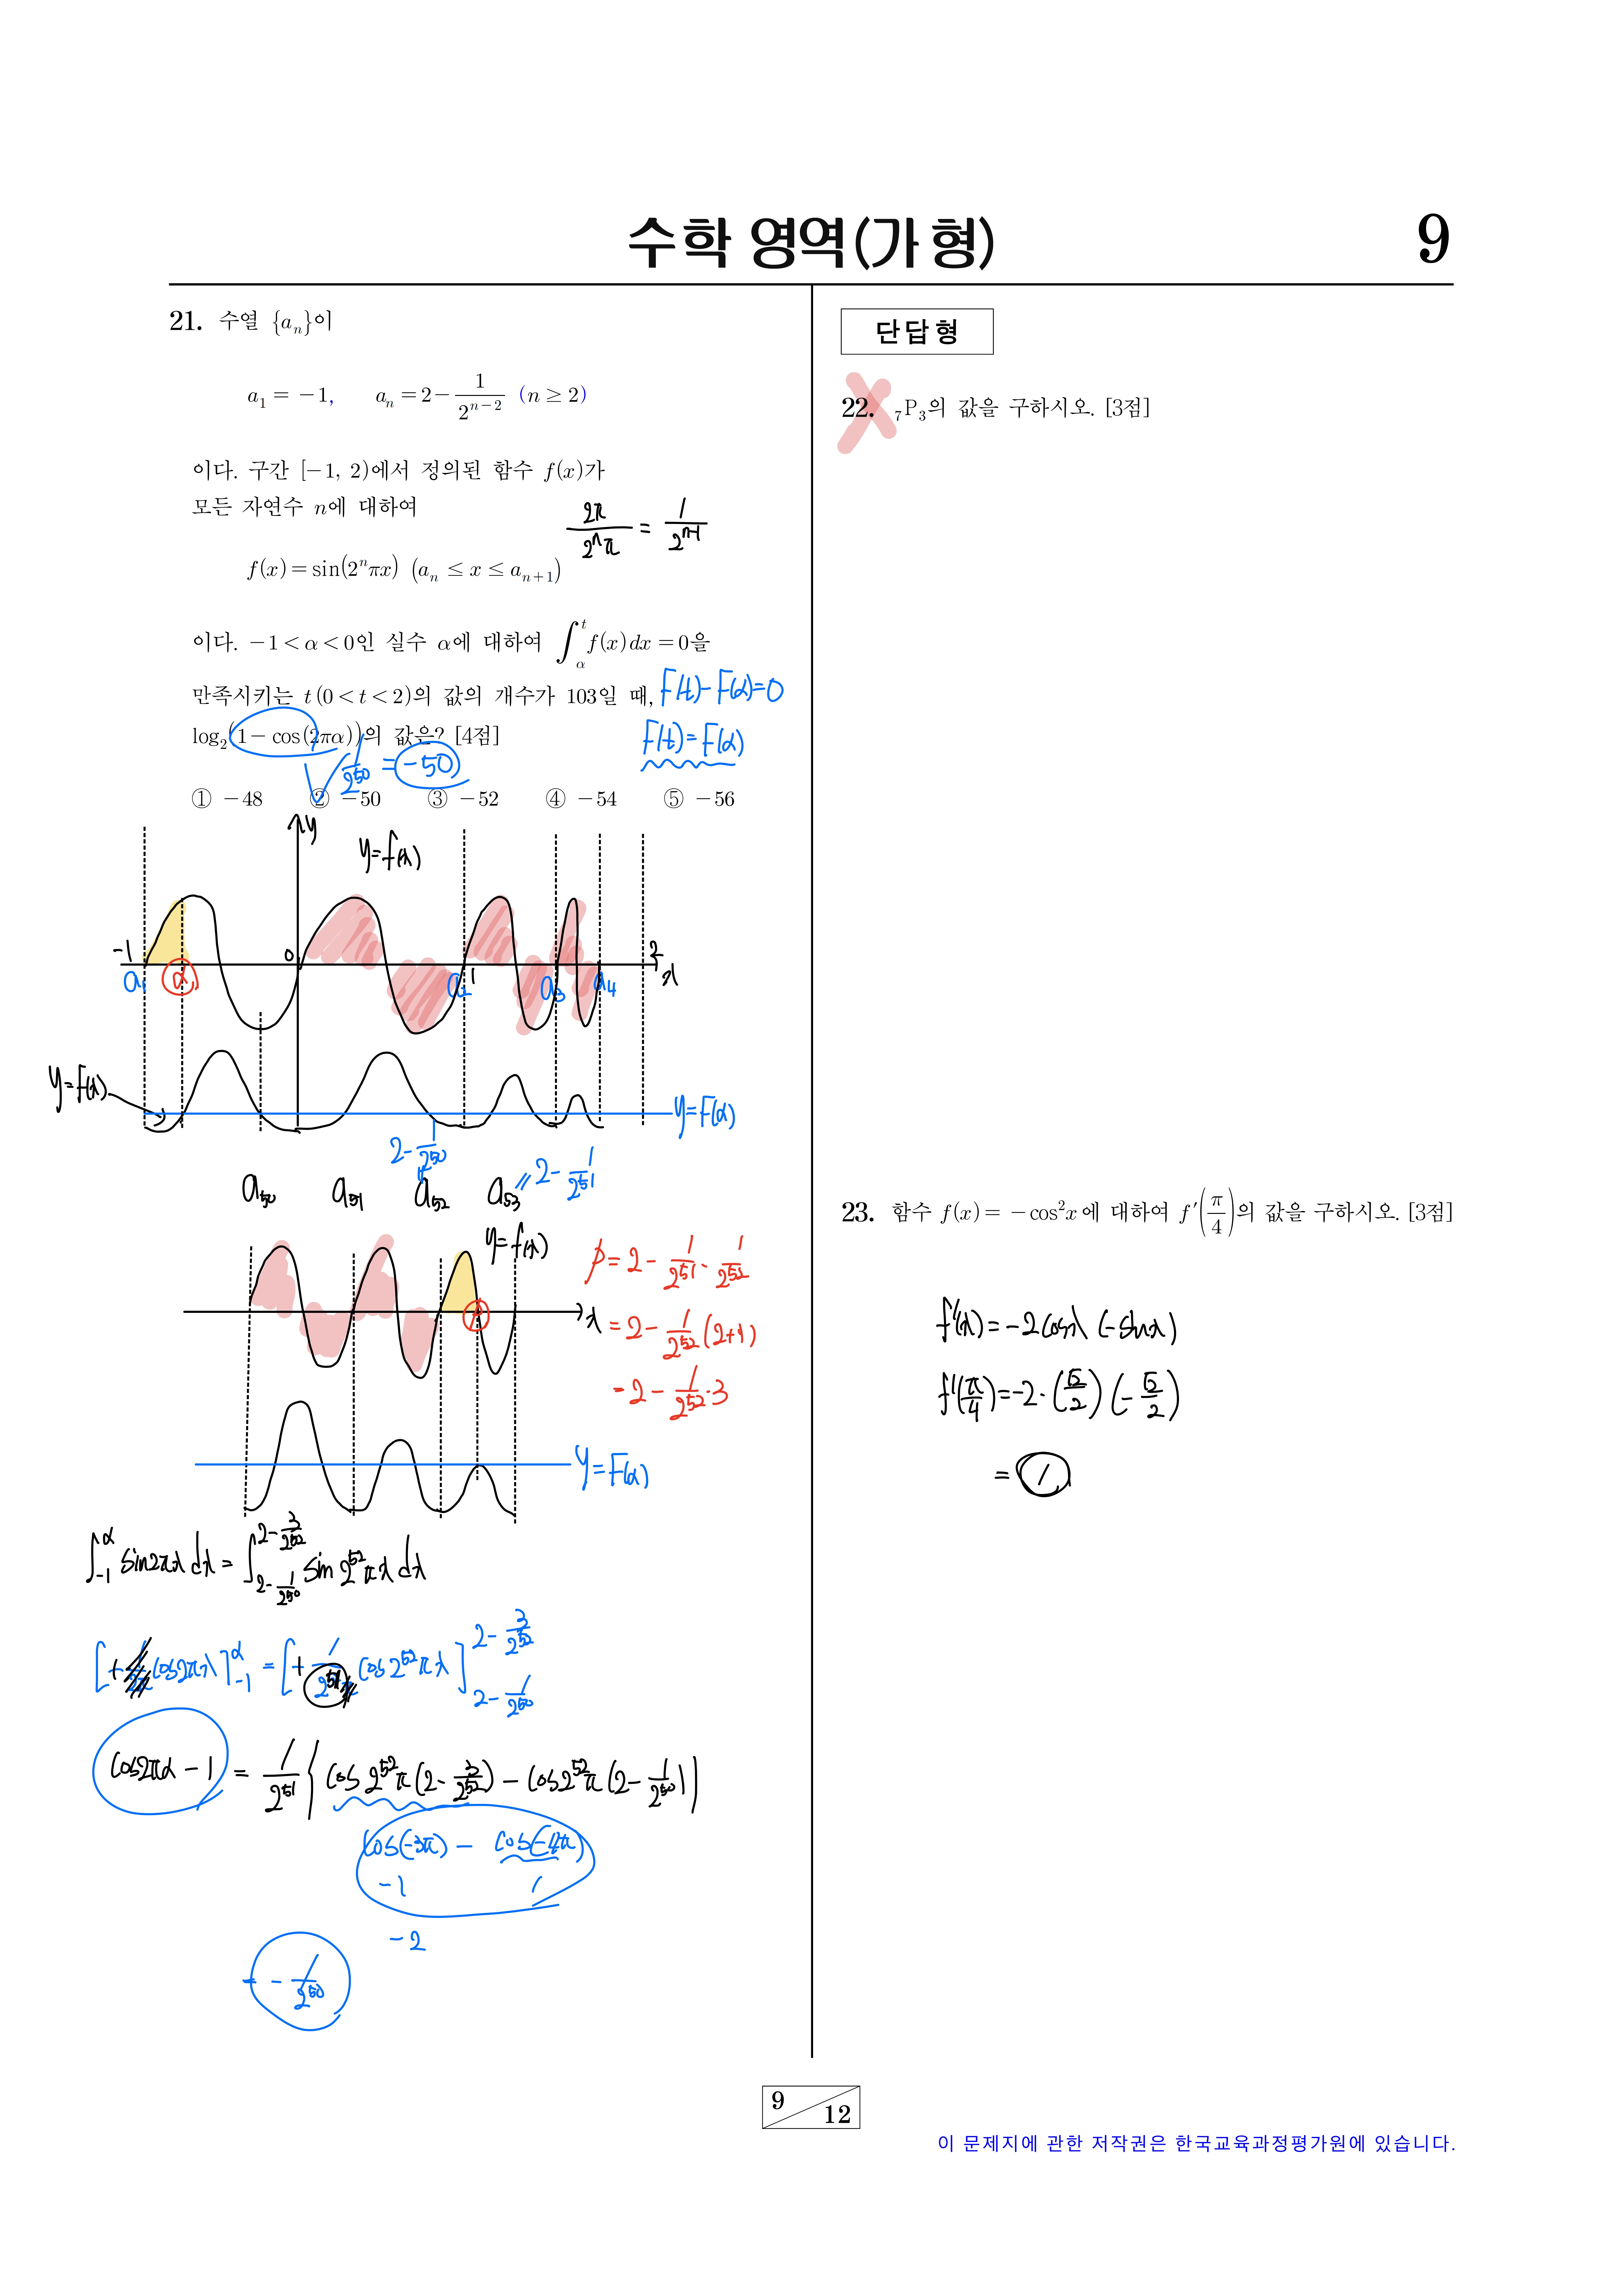 수학 영역(가 형)
9
21. 수열 {aₙ}이
a₁ = -1, aₙ = 2 - 1/2ⁿ⁻² (n ≥ 2)
이다. 구간 [-1, 2)에서 정의된 함수 f(x)가
모든 자연수 n에 대하여
2π/2ⁿπ = 1/2ⁿ⁻¹
f(x) = sin(2ⁿπx) (aₙ ≤ x ≤ aₙ₊₁)
이다. -1 < α < 0인 실수 α에 대하여 ∫_α^t f(x)dx = 0을
만족시키는 t(0 < t < 2)의 값의 개수가 103일 때,
F(t) - F(α) = 0
log₂(1 - cos(2πα))의 값은? [4점]
F(t) = F(α)
1/2⁵⁰ = -50
① -48 ② -50 ③ -52 ④ -54 ⑤ -56
y
y=f(x)
-1 0 1 2 x
a₁ α a₂ a₃ a₄
y=F(x)
y=F(α)
2 - 1/2⁵⁰
2 - 1/2⁵¹
a₅₀ a₅₁ a₅₂ a₅₃
y=f(x)
x
β = 2 - 1/2⁵¹ - 1/2⁵²
= 2 - 1/2⁵² (2+1)
= 2 - 1/2⁵² · 3
y=F(α)
∫_{-1}^{α} sin2πx dx = ∫_{2-1/2⁵⁰}^{2-3/2⁵²} sin2⁵²πx dx
[+ cos2πx]_{-1}^{α} = [+ 1/2⁵¹ cos2⁵²πx]_{2-1/2⁵⁰}^{2-3/2⁵²}
cos2πα - 1 = 1/2⁵¹ { cos2⁵²π(2 - 3/2⁵²) - cos2⁵²π(2 - 1/2⁵⁰) }
cos(-3π) - cos(-4π)
-1 1
-2
= - 1/2⁵⁰
단답형
22. ₇P₃의 값을 구하시오. [3점]
23. 함수 f(x) = -cos²x에 대하여 f′(π/4)의 값을 구하시오. [3점]
f'(x) = -2cosx (-sinx)
f'(π/4) = -2·(√2/2)(-√2/2)
= 1
9
12
이 문제지에 관한 저작권은 한국교육과정평가원에 있습니다.